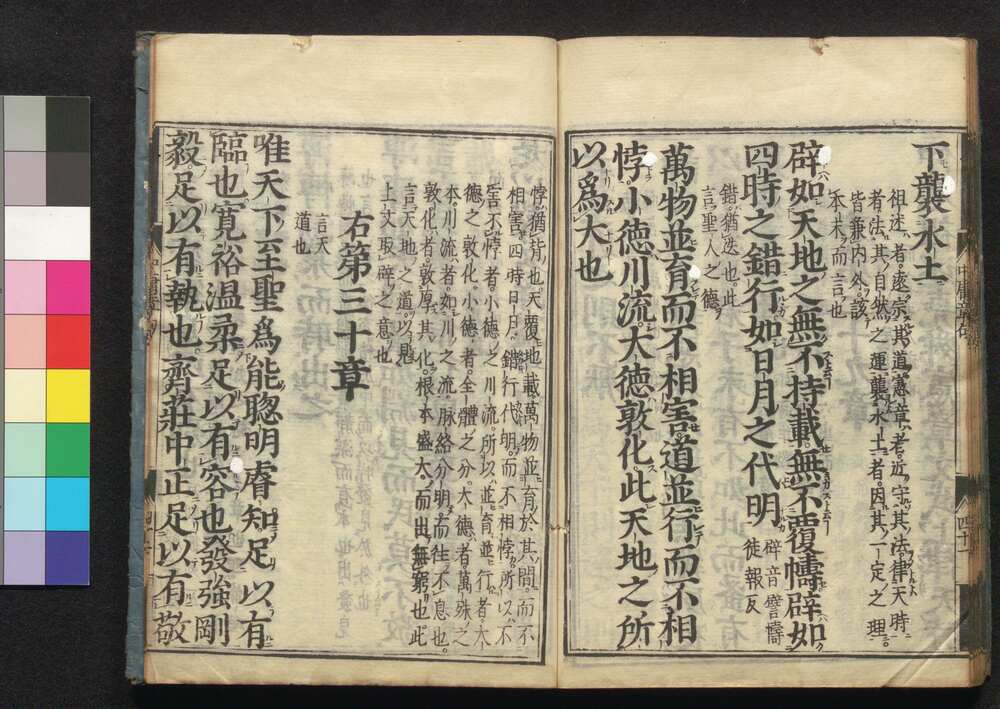 下襲水土
祖述者遠宗其道憲章者近守其法律天時
者法其自然之運襲水土者因其一定之理
皆兼内外該
本末而言也
辟如天地之無不持載無不覆幬辟如
四時之錯行如日月之代明
辟音譬幬
徒報反
錯猶迭也此
言聖人之德
萬物並育而不相害道並行而不相
悖小德川流大德敦化此天地之所
以爲大也
悖猶背也天覆地載萬物並育於其間而不
相害四時日月錯行代明而不相悖所以不
害不悖者小德之川流所以並育並行者大
德之敦化小德者全體之分大德者萬殊之
本川流者如川之流脉絡分明而往不息也
敦化者敦厚其化根本盛大而出無窮也此
言天地之道以見
上文取辟之意也
右第三十章
言天
道也
唯天下至聖爲能聰明睿知足以有
臨也寬裕溫柔足以有容也發強剛
毅足以有執也齊莊中正足以有敬
四十一